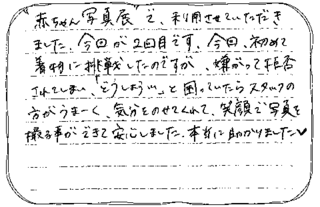 赤ちゃん写真展で、利用させていただき
ました。今回が2回目です。今回、初めて
着物に挑戦したのですが、嫌がって拒否
されてしまい、「どうしよう…」と困っていたらスタッフの
方がうまーく、気分をのせてくれて、笑顔で写真を
撮る事ができて安心しました。本当に助かりました♥